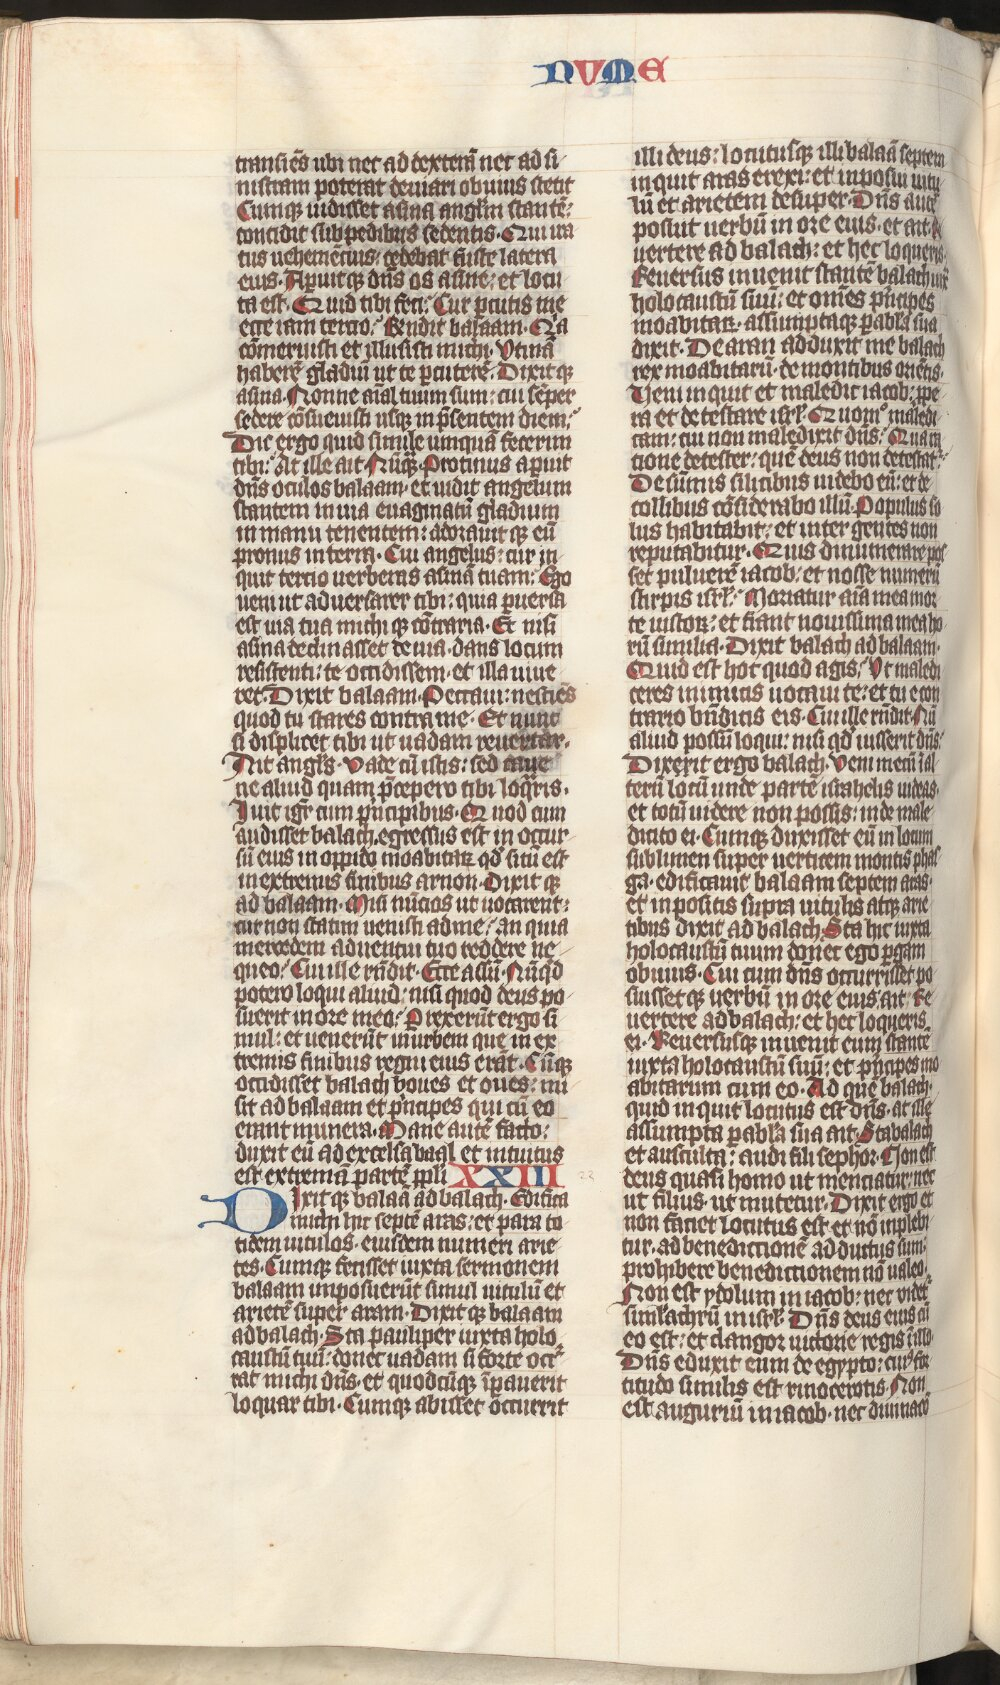 NVME
transiēs ubi nec ad dexterā nec ad si
nistram poterat deuiari obuius stetit
Cumqꝫ uidisset asina anglm̄ stantē:
concidit sub pedibus sedentis. Qui ira
tus uehemētius: cedebat fuste latera
eius. Aperuitqꝫ dn̄s os asine: et locu
ta est. Quid tibi feci: Cur ꝑcutis me
ecce iam tercio: Rn̄dit balaam. Q̄a
cōmeruisti et illusisti michi. Vtinā
haberē gladiū ut te ꝑcuterē. Dixitqꝫ
asina. Nonne aīal tuum sum: cui sēper
sedere cōsueuisti usqꝫ in p̄sentem diem:
Dic ergo quid simile umquā fecerim
tibi: At ille ait Nūqꝫ. Protinus aperuit
dn̄s oculos balaam. et uidit angelum
stantem in uia euaginatū gladium
in manu tenentem: adorauitqꝫ eū
pronus in terra. Cui angelus: cur in
quit tercio uerberas asinā tuam: Ego
ueni ut aduersarer tibi: quia ꝑuersa
est uia tua michiqꝫ cōtraria. Et nisi
asina declinasset de uia. dans locum
resistenti: te occidissem. et illa uiue
ret. Dixit balaam. Peccaui: nesciēs
quod tu stares contra me. Et nunc
si displicet tibi ut uadam reuertar.
Ait angls̄. Vade cū istis: sed caue
ne aliud quam p̄cepero tibi loq̄ris.
Iuit igr̄ cum p̄ncipibus. Quod cum
audisset balach. egressus est in occur
sū eius in oppido moabitaꝝ qd̄ sitū est
in extremis finibus arnon. Dixitqꝫ
ad balaam. Misi nūcios ut uocarent:
cur non statim uenisti ad me: an quia
mercedem aduentui tuo reddere ne
queo: Cui ille rn̄dit. Ecce assū. Nūqd̄
potero loqui aliud: nisi quod deus po
suerit in ore meo: Pirexerūt ergo si
mul: et uenerūt in urbem que in ex
tremis finibus regni eius erāt. Cūqꝫ
occidisset balach boues et oues: mi
sit ad balaam et p̄ncipes qui cū eo
erant munera. Mane autē facto:
duxit eū ad excelsa baal et intuitus
est extremā partē ppli XXIII
Dixitqꝫ balaā ad balach. Edifica
michi hic septē aras: et para to
tidem uitulos. eiusdem numeri arie
tes. Cumqꝫ fecisset iuxta sermonem
balaam imposuerūt simul uitulū et
arietē super aram. Dixitqꝫ balaam
ad balach. Sta paulisper iuxta holo
caustū tuū: donec uadam si forte occr̄
rat michi dn̄s. et quodcūqꝫ īpauerit
loquar tibi. Cumqꝫ abisset occurrit
illi deus: locutusqꝫ illi balaā septem
inquit aras erexi: et inposui uitu
lū et arietem desuper. Dn̄s autē
posuit uerbū in ore eius. et ait. Re
uertere ad balach: et hec loqueris.
Reuersus inuenit stantē balach iux
holocaustū suū: et omēs p̄ncipes
moabitaꝝ. assumptaqꝫ ꝑabla sua
dixit. De aran adduxit me balach
rex moabitarū. de montibus oriētis.
Veni inquit et maledic iacob: ꝓpe
ra et detestare isrl̄. Quomō maledi
cam: cui non maledixit dn̄s: Qua ra
cione detester: quē deus non detestat̄.
De sūmis silicibus uidebo eū: et de
collibus cōsiderabo illū. Populus so
lus habitabit: et inter gentes non
reputabitur. Quis dinumerare pos
set puluerē iacob: et nosse numerū
stirpis isrl̄: Moriatur aīa mea mor
te iustoꝝ: et fiant nouissima mea ho
rū similia. Dixit balach ad balaam.
Quid est hoc quod agis: Vt maledi
ceres inimicis uocaui te: et tu e con
trario bn̄dicis eis. Cui ille rn̄dit. Nū
aliud possū loqui: nisi qd̄ iusserit dn̄s:
Dixerit ergo balach. Veni mecū ī al
terū locū unde partē israhelis uideas.
et totū uidere non possis: inde male
dicito ei. Cumqꝫ duxisset eū in locum
sublimen super uerticem montis phas
ga. edificauit balaam septem aras.
et in positis supra uitulis atqꝫ arie
tibus dixit ad balach. Sta hic iuxta
holocaustū tuum donec ego ꝑgam
obuius. Cui cum dn̄s occurrisset po
suissetqꝫ uerbū in ore eius: ait. Re
uertere ad balach: et hec loqueris
ei. Reuersusqꝫ inuenit eum stantē
iuxta holocaustū suū: et p̄ncipes mo
abitarum cum eo. Ad quē balach.
quid inquit locutus est dn̄s. at ille
assumpta ꝑabla sua ait. Sta balach
et ausculta: audi fili sephor. Non est
deus quasi homo ut menciatur: nec
ut filius. ut mutetur. Dixit ergo et
non faciet locutus est et nō inplebi
tur. ad benedictionē adductus sum.
prohibere benedictionem nō ualeo.
Non est ydolum in iacob: nec uidet̄
simlachrū in isrl̄. Dn̄s deus eius cū
eo est: et clangor uictorie regis ī illo.
Dn̄s eduxit eum de egypto: cuiꝰ for
titudo similis est rinocerotis. Non
est auguriū in iacob. nec diuinacō